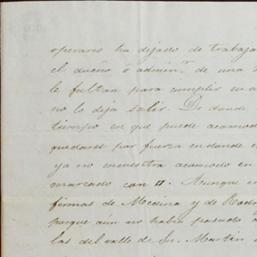 operario ha dejado de trabaja
el dueño ó admin.r de una
le faltan para cumplir su
no lo deja salir. De donde
tiempo en que puede acomod
quedarse por fuerza en donde e
ya no encuentra acomodo en
marcado con
Aunque
firmas de Medina y de
porque aún no había pasado
las del valle de Sn. Martín